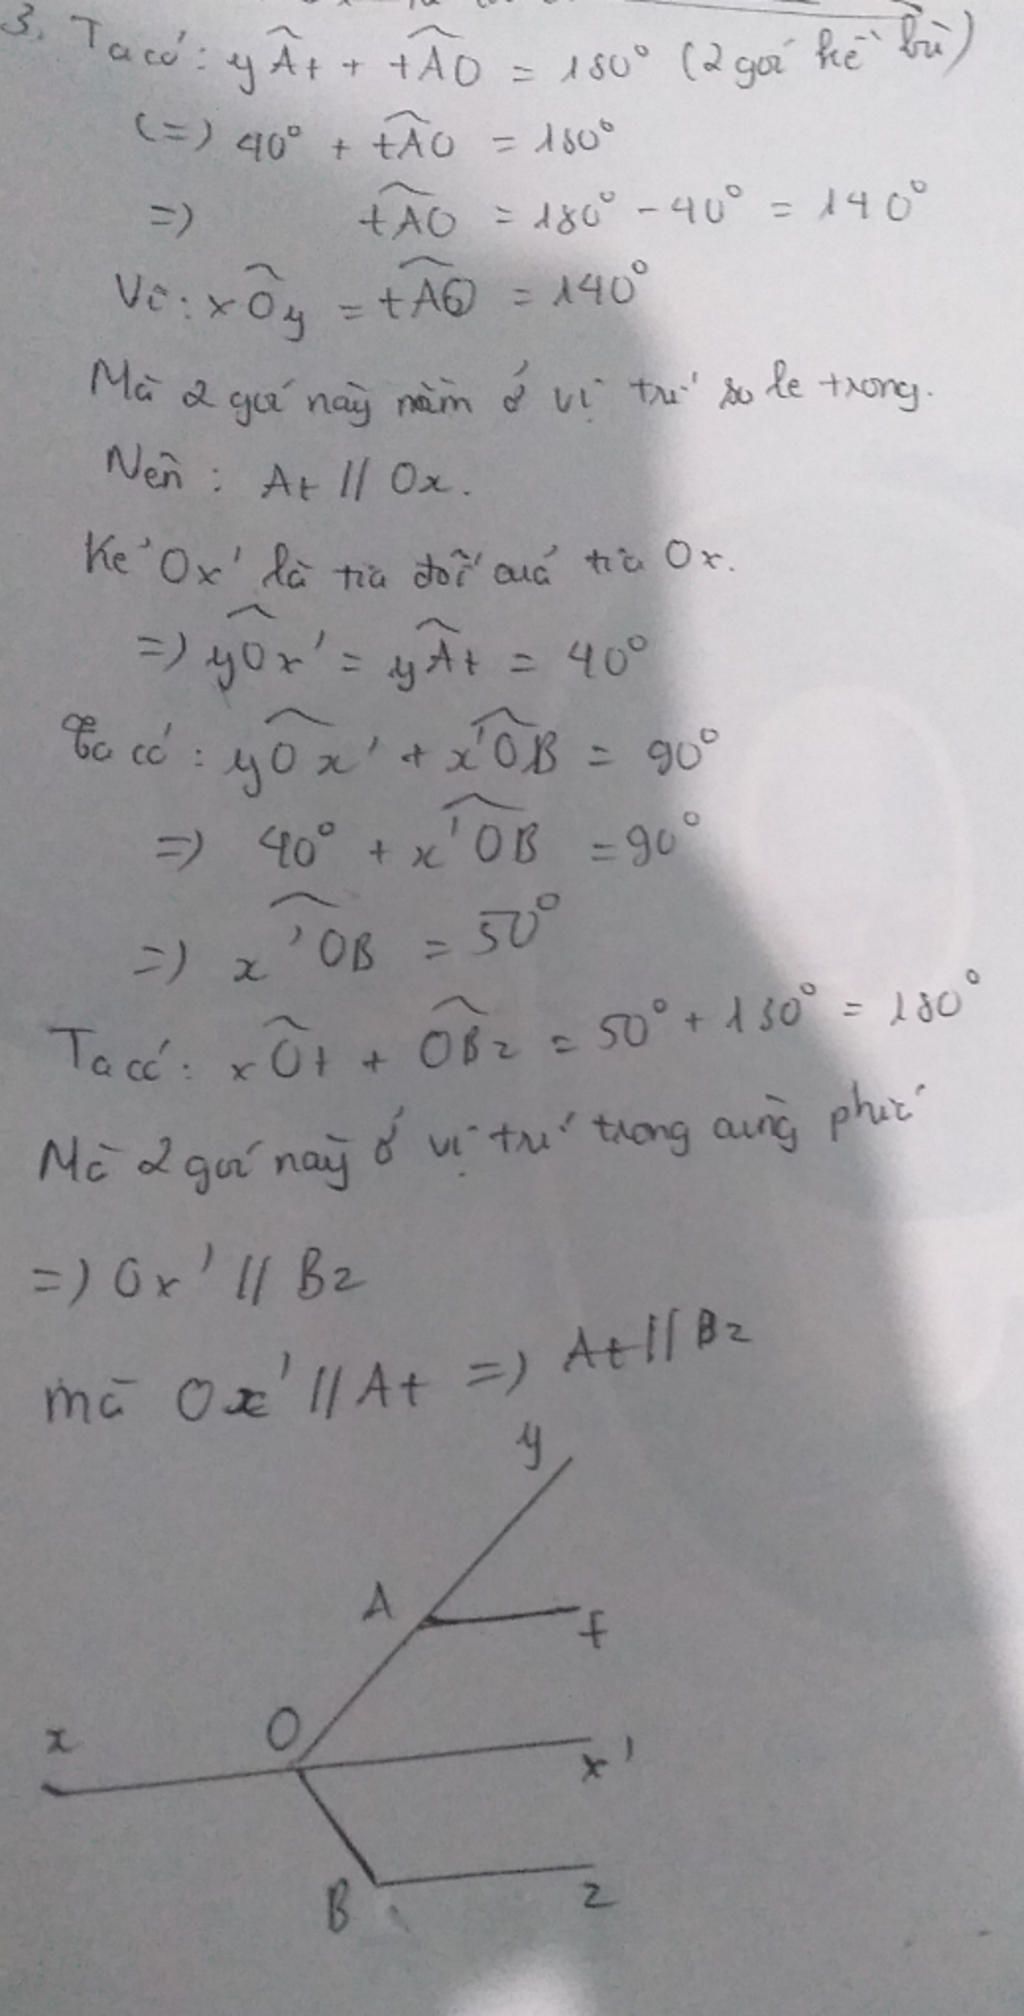 3. Ta có: yÂt + tÂO = 180° (2 góc kề bù)
(=) 40° + tÂO = 180°
=) tÂO = 180° - 40° = 140°
Vì: xÔy = tÂO = 140°
Mà 2 góc này nằm ở vị trí so le trong.
Nên: At // Ox.
Kẻ Ox' là tia đối củả tia Ox.
=) yÔx' = yÂt = 40°
Ta có: yÔx' + x'ÔB = 90°
=) 40° + x'ÔB = 90°
=) x'ÔB = 50°
Ta có: xÔt + OB̂z = 50° + 130° = 180°
Mà 2 góc này ở vị trí trong cùng phía
=) Ox' // Bz
mà Ox' // At =) At // Bz
y
A
t
O
x
x'
B
z